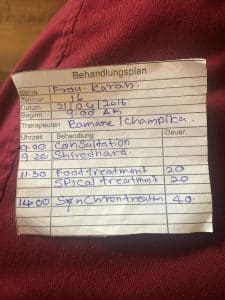 Behandlungsplan
Name Frau. Karah.
Zimmer 16
Datum 21/04/2016
Beginn 9.00 Am
Therapeuten Ramane / Champika.
Uhrzeit Behandlung Dauer
9:00 Consultation
9:20 Shirodhara
11:30 Foot treatment 20
Spical treatment 20
14:00 40